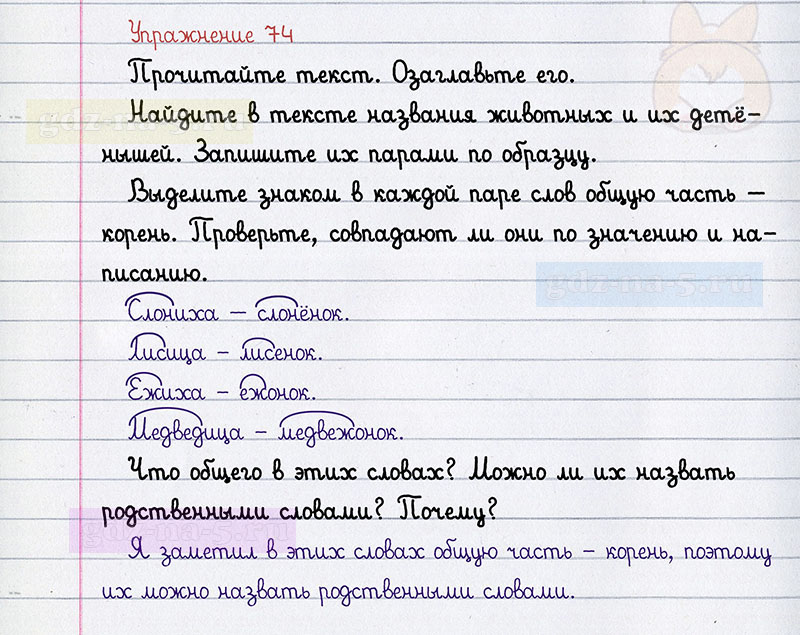 Упражнение 74
Прочитайте текст. Озаглавьте его.
Найдите в тексте названия животных и их детё-
нышей. Запишите их парами по образцу.
Выделите знаком в каждой паре слов общую часть –
корень. Проверьте, совпадают ли они по значению и на-
писанию.
Слониха – слонёнок.
Лисица – лисенок.
Ежиха – ежонок.
Медведица – медвежонок.
Что общего в этих словах? Можно ли их назвать
родственными словами? Почему?
Я заметил в этих словах общую часть – корень, поэтому
их можно назвать родственными словами.
gdz-na-5.ru
gdz-na-5.ru
gdz-na-5.ru